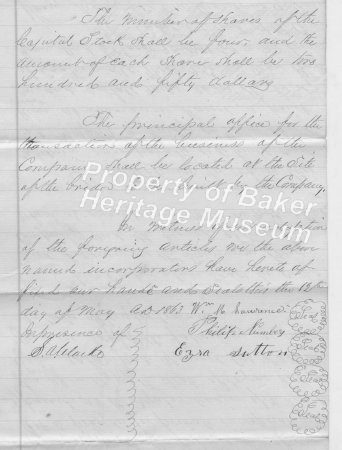 The number of shares of the
Capital Stock shall be four, and the
amount of each share shall be two
hundred and fifty dollars
The principal office for the
transactions of the business of the
Company shall be located at the Site
of the bridge to be built by the Company.
Property of Baker
Heritage Museum
In witness of
of the foregoing articles we the above
named incorporators have hereto af
fixed our hands and Seals this the 13th
day of May AD 1863 Wm H
In presence of Philip
Ezra Sutton
Seal
Seal
Seal